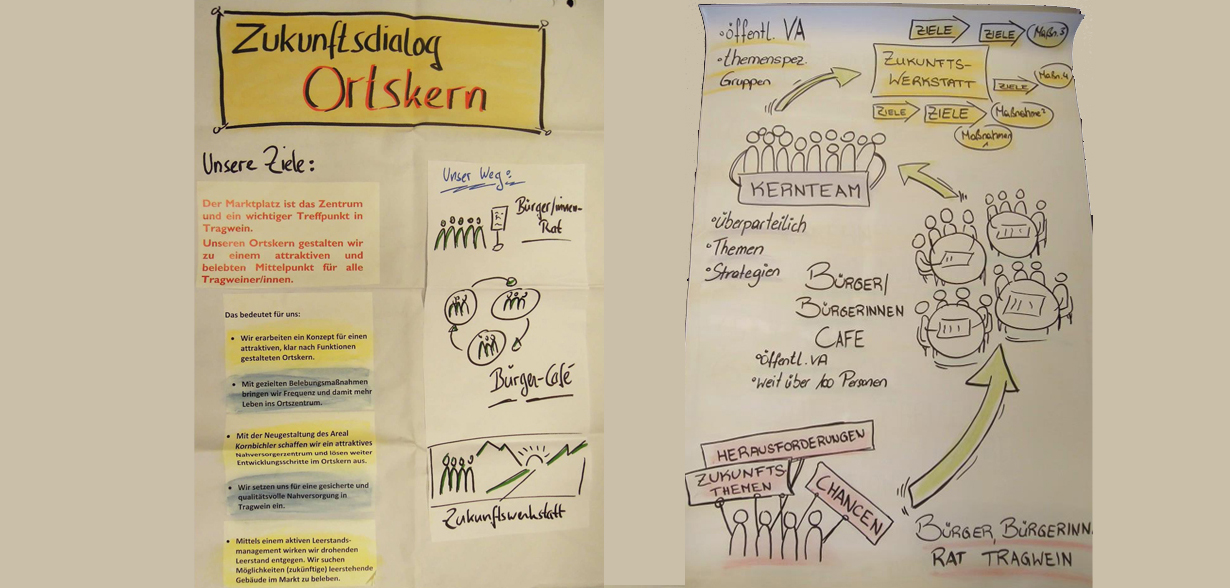 Zukunftsdialog
Ortskern
Unsere Ziele:
Der Marktplatz ist das Zentrum
und ein wichtiger Treffpunkt in
Tragwein.
Unseren Ortskern gestalten wir
zu einem attraktiven und
belebten Mittelpunkt für alle
Tragweiner/innen.
Das bedeutet für uns:
• Wir erarbeiten ein Konzept für einen
attraktiven, klar nach Funktionen
gestalteten Ortskern.
• Mit gezielten Belebungsmaßnahmen
bringen wir Frequenz und damit mehr
Leben ins Ortszentrum.
• Mit der Neugestaltung des Areal
Kornbichler schaffen wir ein attraktives
Nahversorgerzentrum und lösen weiter
Entwicklungsschritte im Ortskern aus.
• Wir setzen uns für eine gesicherte und
qualitätsvolle Nahversorgung in
Tragwein ein.
• Mittels einem aktiven Leerstands-
management wirken wir drohenden
Leerstand entgegen. Wir suchen
Möglichkeiten (zukünftige) leerstehende
Gebäude im Markt zu beleben.
Unser Weg:
Bürger/innen-
Rat
Bürger-Café
Zukunftswerkstatt
• öffentl. VA
• themenspez.
Gruppen
ZIELE
ZIELE
Maßn.3
ZUKUNFTS-
WERKSTATT
ZIELE
Maßn.4
ZIELE
ZIELE
Maßnahme 2
Maßnahmen
1
KERNTEAM
• überparteilich
• Themen
• Strategien
BÜRGER/
BÜRGERINNEN
CAFE
• öffentl. VA
• weit über 100 Personen
HERAUSFORDERUNGEN
ZUKUNFTS
THEMEN
CHANCEN
BÜRGER, BÜRGERINN
RAT TRAGWEIN